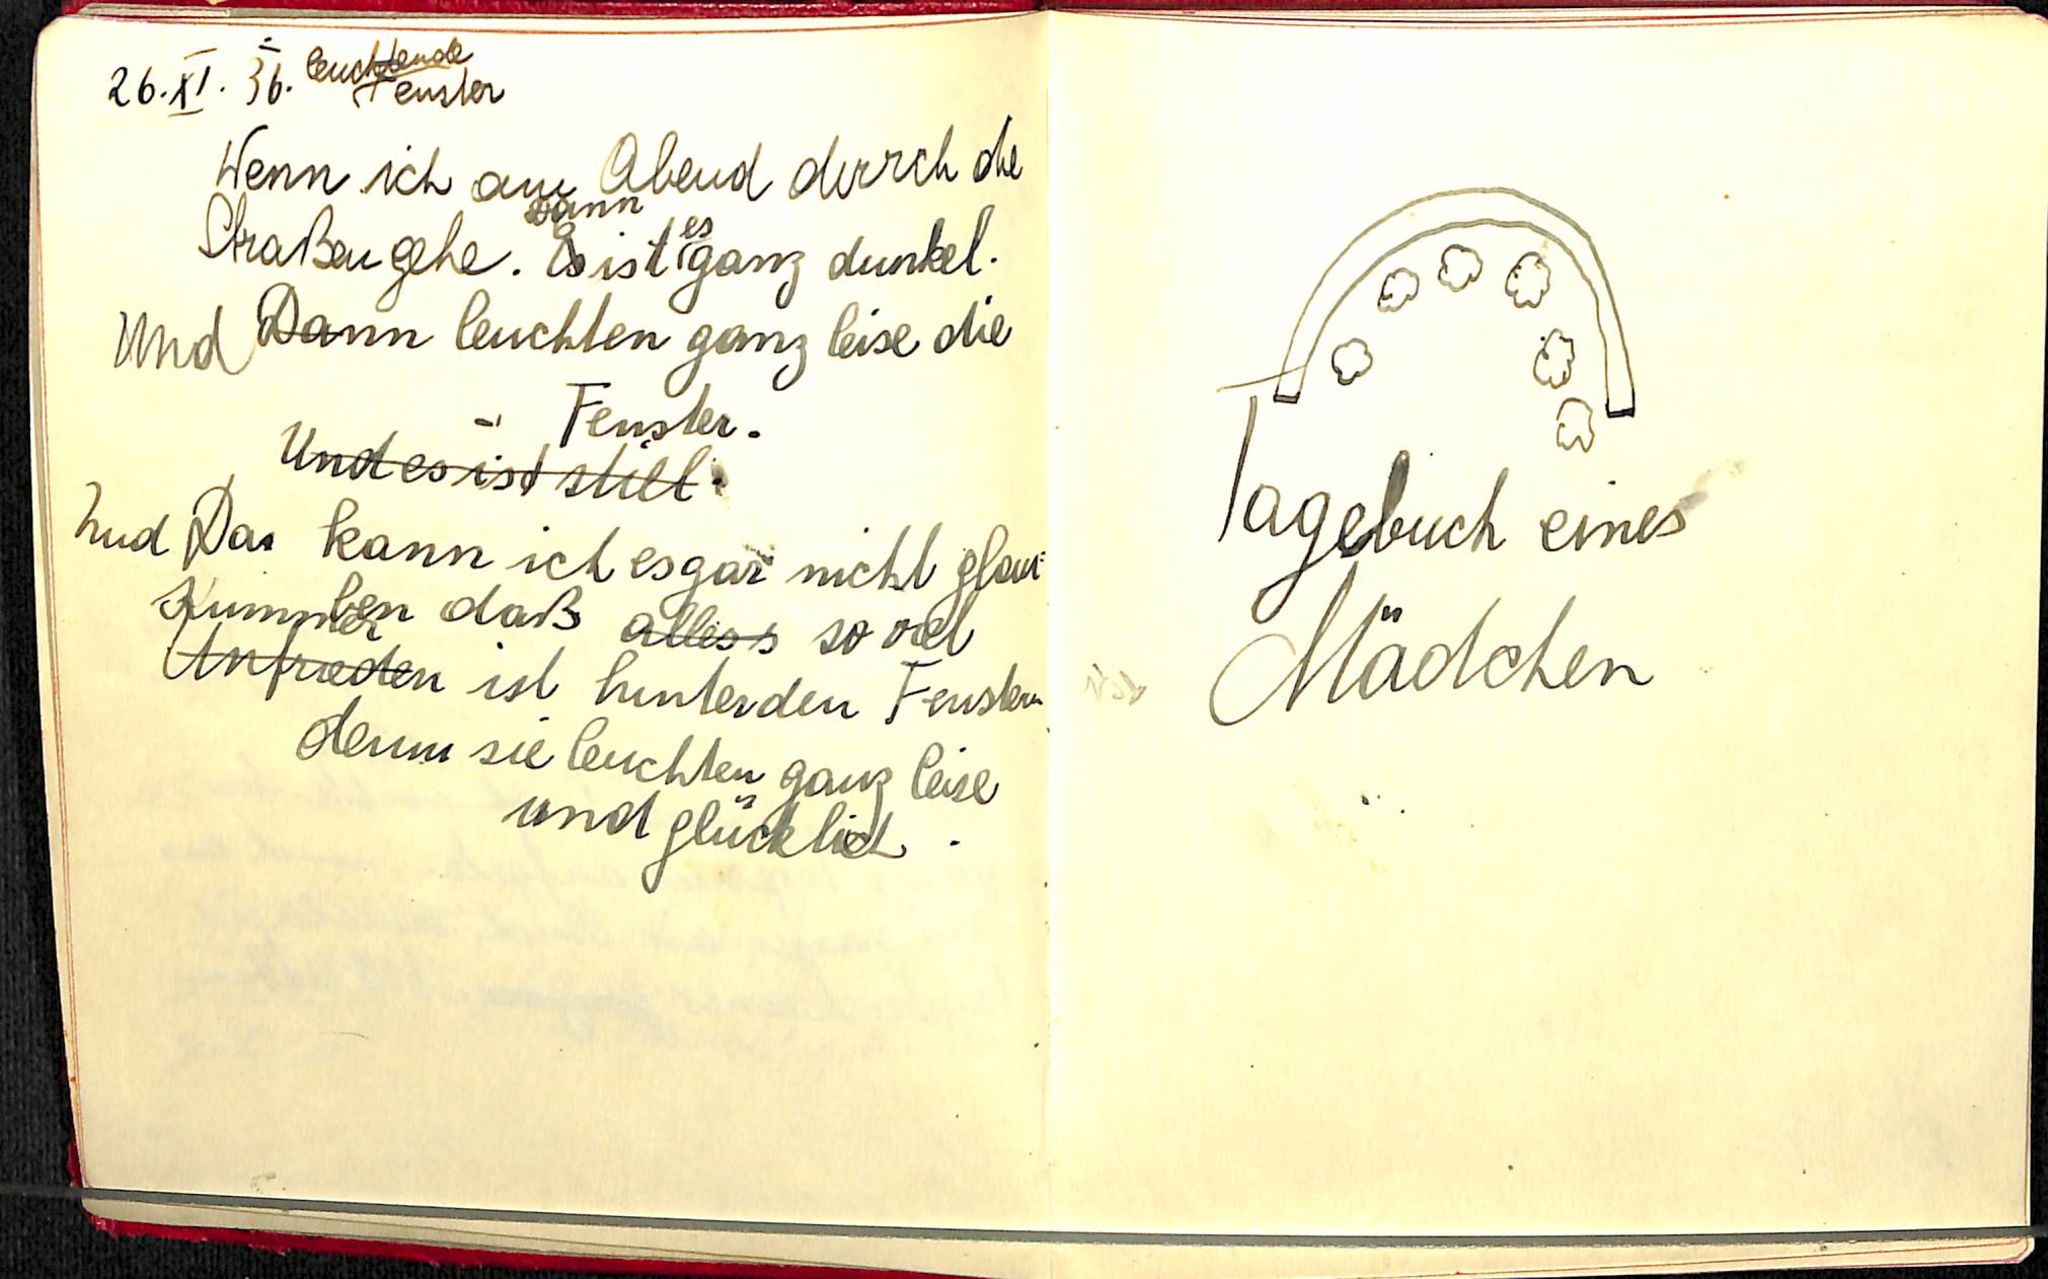 26. XI. 36. leuchtende
Fenster
Wenn ich am Abend durch die
dann
Straßen gehe. Es ist es ganz dunkel.
Und Dann leuchten ganz leise die
Fenster.
Und es ist still.
Und Da kann ich es gar nicht glau-
ben daß alles so viel
Kummer
Unfrieden ist hinter den Fenstern
denn sie leuchten ganz leise
und glücklich.
Tagebuch eines
Mädchen